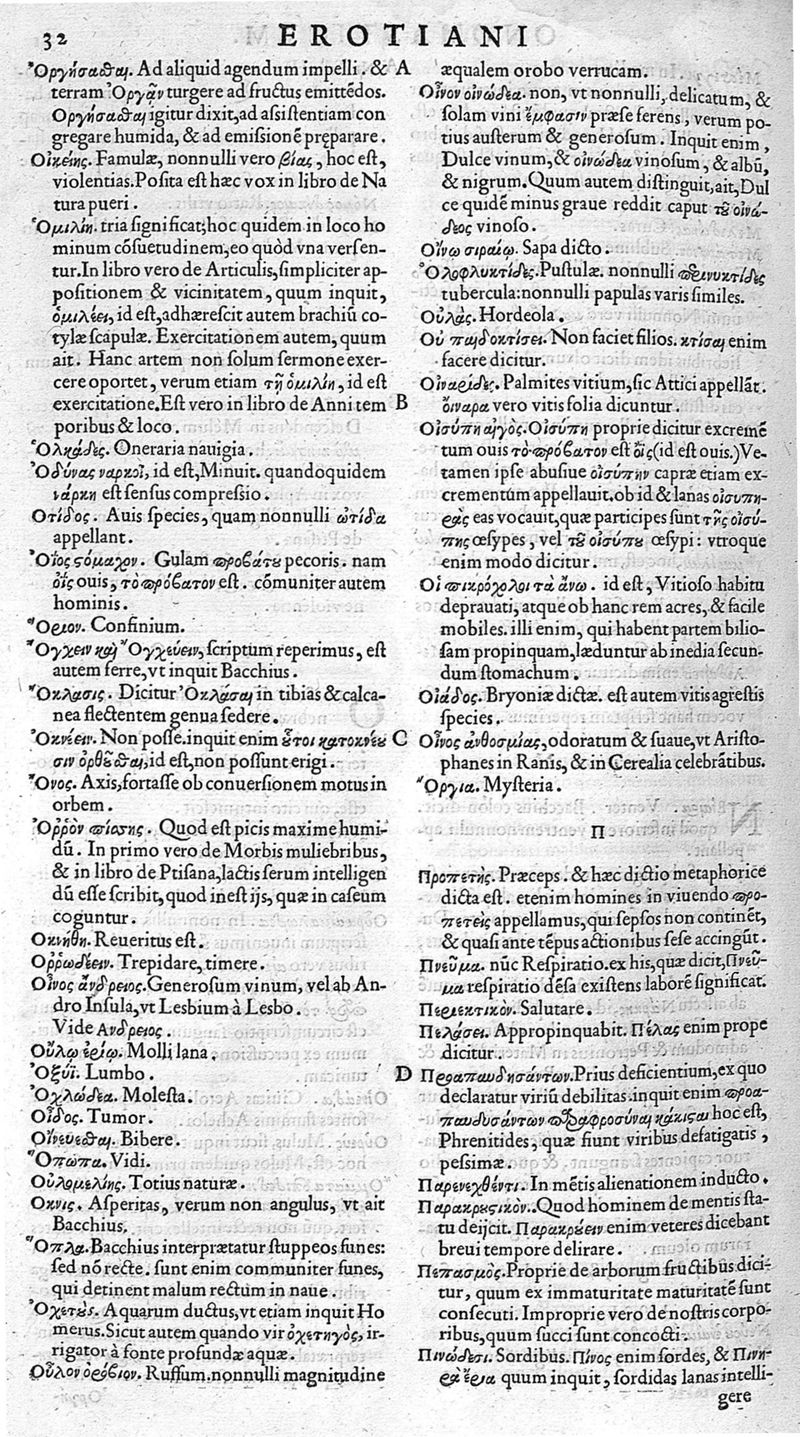 32 EROTIANI
Ὀργήσασθαι. Ad aliquid agendum impelli. & A
terram Ὀργᾶν turgere ad fructus emittẽdos.
Ὀργήσασθαι igitur dixit, ad assistentiam con
gregare humida, & ad emissionẽ preparare.
Οἰκείης. Famulæ, nonnulli vero βίας, hoc est,
violentias. Posita est hæc vox in libro de Na
tura pueri.
Ὁμιλίη. tria significat; hoc quidem in loco ho
minum cõsuetudinem, eo quòd vna versen-
tur. In libro vero de Articulis, simpliciter ap-
positionem & vicinitatem, quum inquit,
ὁμιλέει, id est, adhærescit autem brachiũ co-
tylæ scapulæ. Exercitationem autem, quum
ait. Hanc artem non solum sermone exer-
cere oportet, verum etiam τῇ ὁμιλίῃ, id est
exercitatione. Est vero in libro de Anni tem B
poribus & loco.
Ὁλκάδες. Oneraria nauigia.
Ὀδύνας ναρκοῖ, id est, Minuit. quandoquidem
νάρκη est sensus compressio.
Οτίδος. Auis species, quam nonnulli ὠτίδα
appellant.
Ὄϊος στόμαχον. Gulam προβάτου pecoris. nam
ὄϊς ouis, τὸ πρόβατον est. cõmuniter autem
hominis.
Ὅριον. Confinium.
Ὄγχειν καὶ Ὀγχεύειν, scriptum reperimus, est
autem ferre, vt inquit Bacchius.
Ὄκλασις. Dicitur Ὀκλάσαι in tibias & calca-
nea flectentem genua sedere.
Ὀκνέειν. Non posse. inquit enim οὗτοι κατοκνέου C
σιν ὀρθοῦσθαι, id est, non possunt erigi.
Ὄνος. Axis, fortasse ob conuersionem motus in
orbem.
Ὀῤῥὸν πίσσης. Quod est picis maxime humi-
dũ. In primo vero de Morbis muliebribus,
& in libro de Ptisana, lactis serum intelligen
dũ esse scribit, quod inest ijs, quæ in caseum
coguntur.
Οκνήθη. Reueritus est.
Οῤῥωδέειν. Trepidare, timere.
Οἶνος ἄνδρειος. Generosum vinum, vel ab An-
dro Insula, vt Lesbium à Lesbo.
Vide Ανδρειος.
Οὔλῳ ἐρίῳ. Molli lana.
Ὀξύϊ. Lumbo.
Ὀχλώδεα. Molesta.
Οἶδος. Tumor.
Οἰνεύεσθαι. Bibere.
Ὄπωπα. Vidi.
Οὐλομελίης. Totius naturæ.
Οκνις. Asperitas, verum non angulus, vt ait
Bacchius.
Ὅπλα. Bacchius interprætatur stuppeos funes:
sed nõ recte. sunt enim communiter funes,
qui detinent malum rectum in naue.
Ὀχετούς. Aquarum ductus, vt etiam inquit Ho
merus. Sicut autem quando vir ὀχετηγὸς, ir-
rigator à fonte profundæ aquæ.
Οὖλον ὀρόβιον. Ruffum. nonnulli magnitudine
æqualem orobo verrucam.
Οἶνον οἰνώδεα. non, vt nonnulli, delicatum, &
solam vini ἔμφασιν præse ferens, verum po-
tius austerum & generosum. Inquit enim,
Dulce vinum, & οἰνώδεα vinosum, & albũ,
& nigrum. Quum autem distinguit, ait, Dul
ce quidẽ minus graue reddit caput τοῦ οἰνώ-
δεος vinoso.
Οἴνῳ σιραίῳ. Sapa dicto.
Ὀλοφλυκτίδες. Pustulæ. nonnulli ἐπινυκτίδες
tubercula: nonnulli papulas varis similes.
Οὐλὰς. Hordeola.
Οὐ παιδοκτίσει. Non faciet filios. κτίσαι enim
facere dicitur.
Οἰναρίδες. Palmites vitium, sic Attici appellãt.
ὄιναρα vero vitis folia dicuntur.
Οἰσύπη αἰγὸς. Οἰσύπη proprie dicitur excremẽ
tum ouis τὸ πρόβατον est ὄϊς (id est ouis.) Ve-
tamen ipse abusiue οἰσύπην capræ etiam ex-
crementum appellauit. ob id & lanas οἰσυπη-
ρὰς eas vocauit, quæ participes sunt τῆς οἰσύ-
πης œsypes, vel τοῦ οἰσύπου œsypi: vtroque
enim modo dicitur.
Οἱ πικρόχολοι τὰ ἄνω. id est, Vitioso habitu
deprauati, atque ob hanc rem acres, & facile
mobiles. illi enim, qui habent partem bilio-
sam propinquam, læduntur ab inedia secun-
dum stomachum.
Οἰάδος. Bryoniæ dictæ. est autem vitis agrestis
species.
Οἶνος ἀνθοσμίας, odoratum & suaue, vt Aristo-
phanes in Ranis, & in Cerealia celebrãtibus.
Ὄργια. Mysteria.
Π
Προπετής. Præceps. & hæc dictio metaphorice
dicta est. etenim homines in viuendo προ-
πετεῖς appellamus, qui sepsos non continẽt,
& quasi ante tẽpus actionibus sese accingũt.
Πνεῦμα. nũc Respiratio. ex his, quæ dicit, Πνεῦ-
μα respiratio dẽsa existens laborẽ significat.
Περιεκτικὸν. Salutare.
Πελάσει. Appropinquabit. Πέλας enim prope
dicitur.
D Προαπαυδησάντων. Prius deficientium, ex quo
declaratur viriũ debilitas. inquit enim προα-
παυδυσάντων παραφροσύναι κάκισται hoc est,
Phrenitides, quæ fiunt viribus defatigatis,
pessimæ.
Παρενεχθέντι. In mẽtis alienationem inducto.
Παρακρουστικὸν. Quod hominem de mentis sta-
tu deijcit. Παρακρούειν enim veteres dicebant
breui tempore delirare.
Πεπασμὸς. Proprie de arborum fructibus dici-
tur, quum ex immaturitate maturitatẽ sunt
consecuti. Improprie vero de nostris corpo-
ribus, quum succi sunt concocti.
Πινώδεσι. Sordibus. Πίνος enim sordes, & Πινη-
ρὰ ἔρια quum inquit, sordidas lanas intelli-
gere